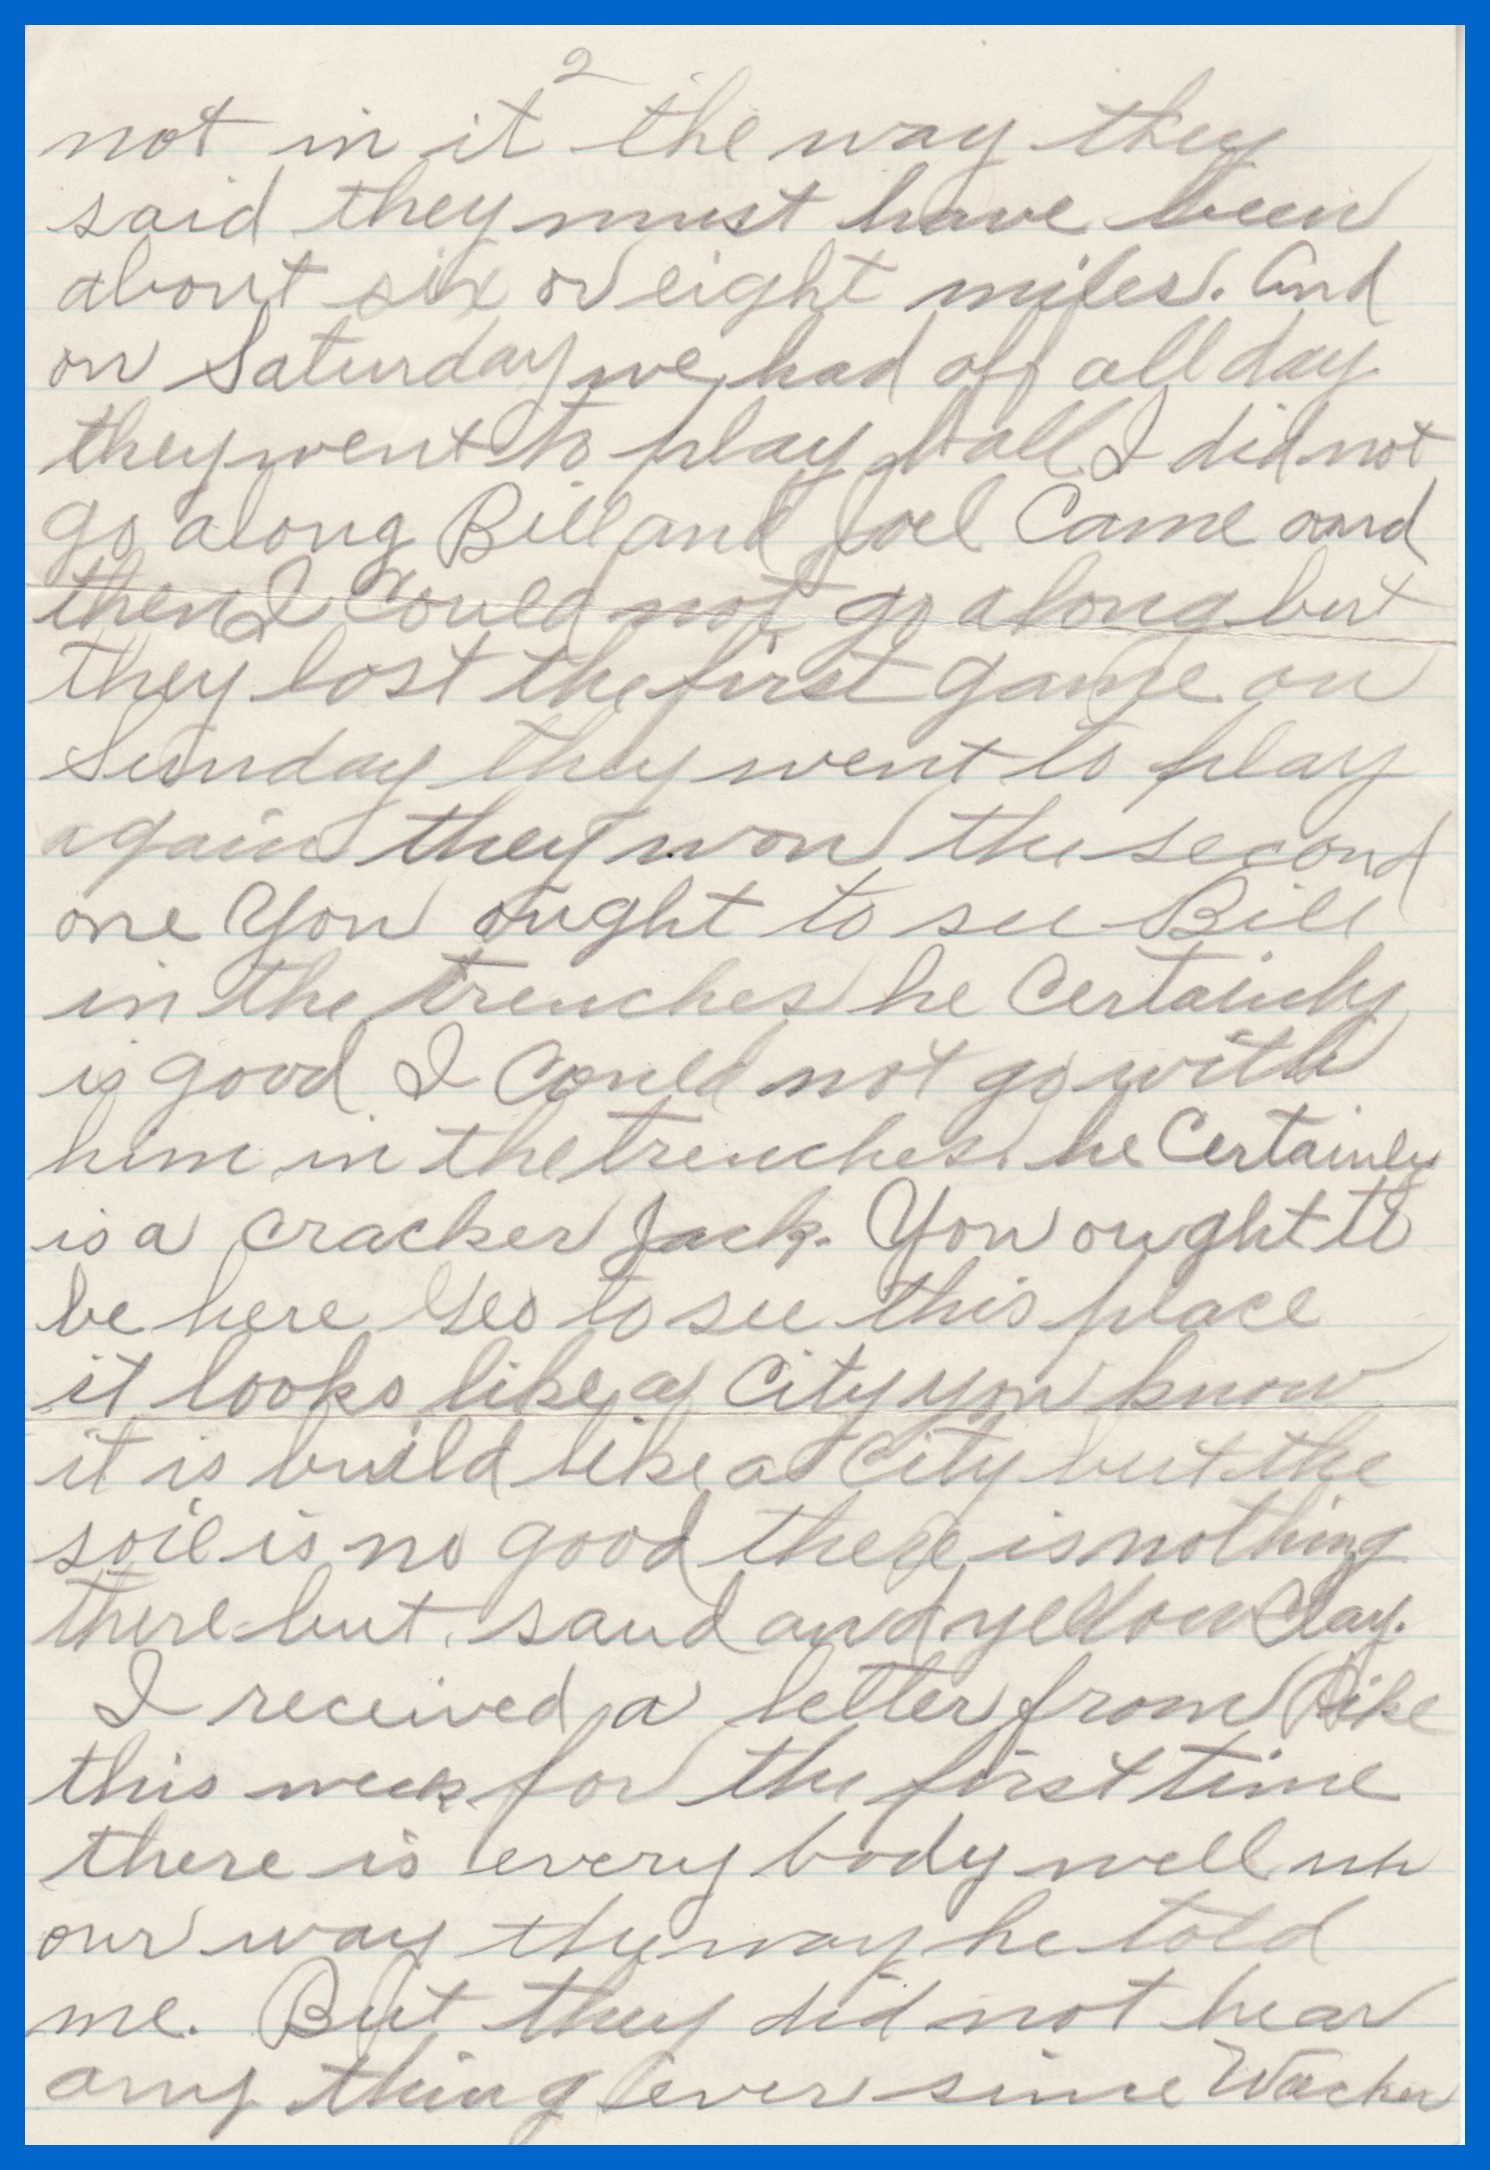 2
not in it the way they
said they must have been
about six or eight miles. And
on Saturday we had off all day
they went to play ball I did not
go along Bill and Joel Came and
then I Could not go along but
they lost the first game on
Sunday they went to play
again they won the second
one You ought to see Bill
in the trenches he Certainly
is good I Could not go with
him in the trenches he Certainly
is a cracker Jack. You ought to
be here Geo to see this place
it looks like a City you know
it is build like a City but the
soil is no good there is nothing
there but sand and yellow Clay.
I received a letter from Pike
this week for the first time
there is every body well up
our way the way he told
me. But they did not hear
any thing ever since Wacker